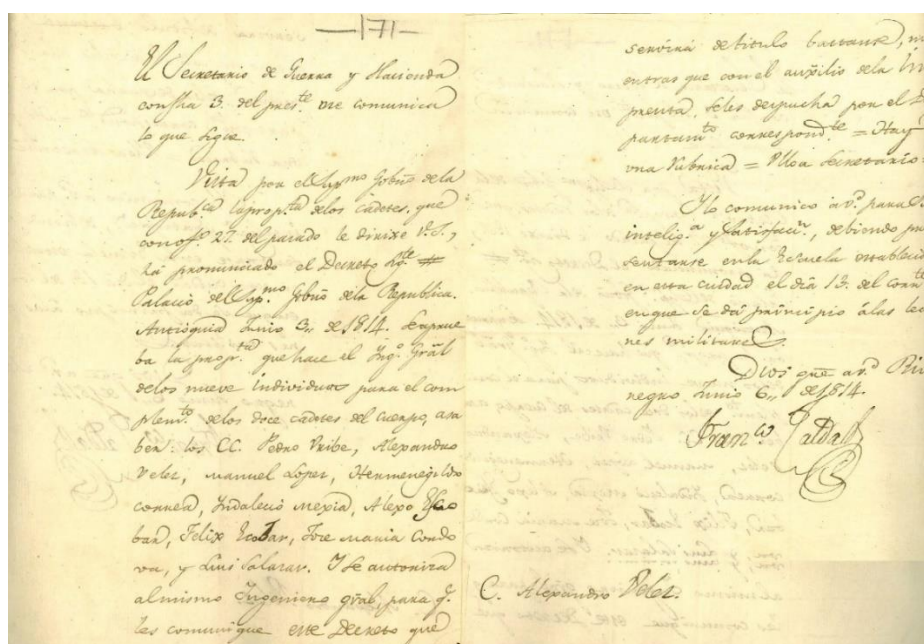 —171—
El Secretario de Guerra y Hacienda
con fha 3. del pres.te me comunica
lo que sigue.
Vista por el Sup.mo Gobno de la
Repub.ca la prop.ta de los cadetes, que
con of.o 27. del pasado le dirixe V.S.,
há pronunciado el Decreto sig.te
Palacio del Sup.mo Gobno de la Republica.
Antioquia Junio 3,, de 1814. Se aprue
ba la prop.ta que hace el Ing.o Gral
de los nueve individuos para el com
plem.to de los doce cadetes del cuerpo, a sa
ber: los CC. Pedro Uribe, Alexandro
Velez, Manuel Lopez, Hermenegildo
Correa, Indalecio Mexia, Alexo Esco
bar, Felix Escobar, Jose Maria Cordo
va, y Luis Salazar. Y se autoriza
al mismo Ingeniero gral, para q.e
les comunique este Decreto que
servirá de titulo bastante, mi
entras que con el auxilio de la Im
prenta, se les despacha por el De
partam.to correspond.te = Hay
una Rubrica = Ulloa Secretario
Y lo comunico a v.d para su
intelig.a y satisfac.n, debiendo pre
sentarse en la Escuela establecida
en esta ciudad el dia 13. del corr.te
en que se dá principio á las leccio
nes militares.
Dios gue a v.d Rio
negro Junio 6,, de 1814.
Fran.co Caldas
C. Alexandro Velez.